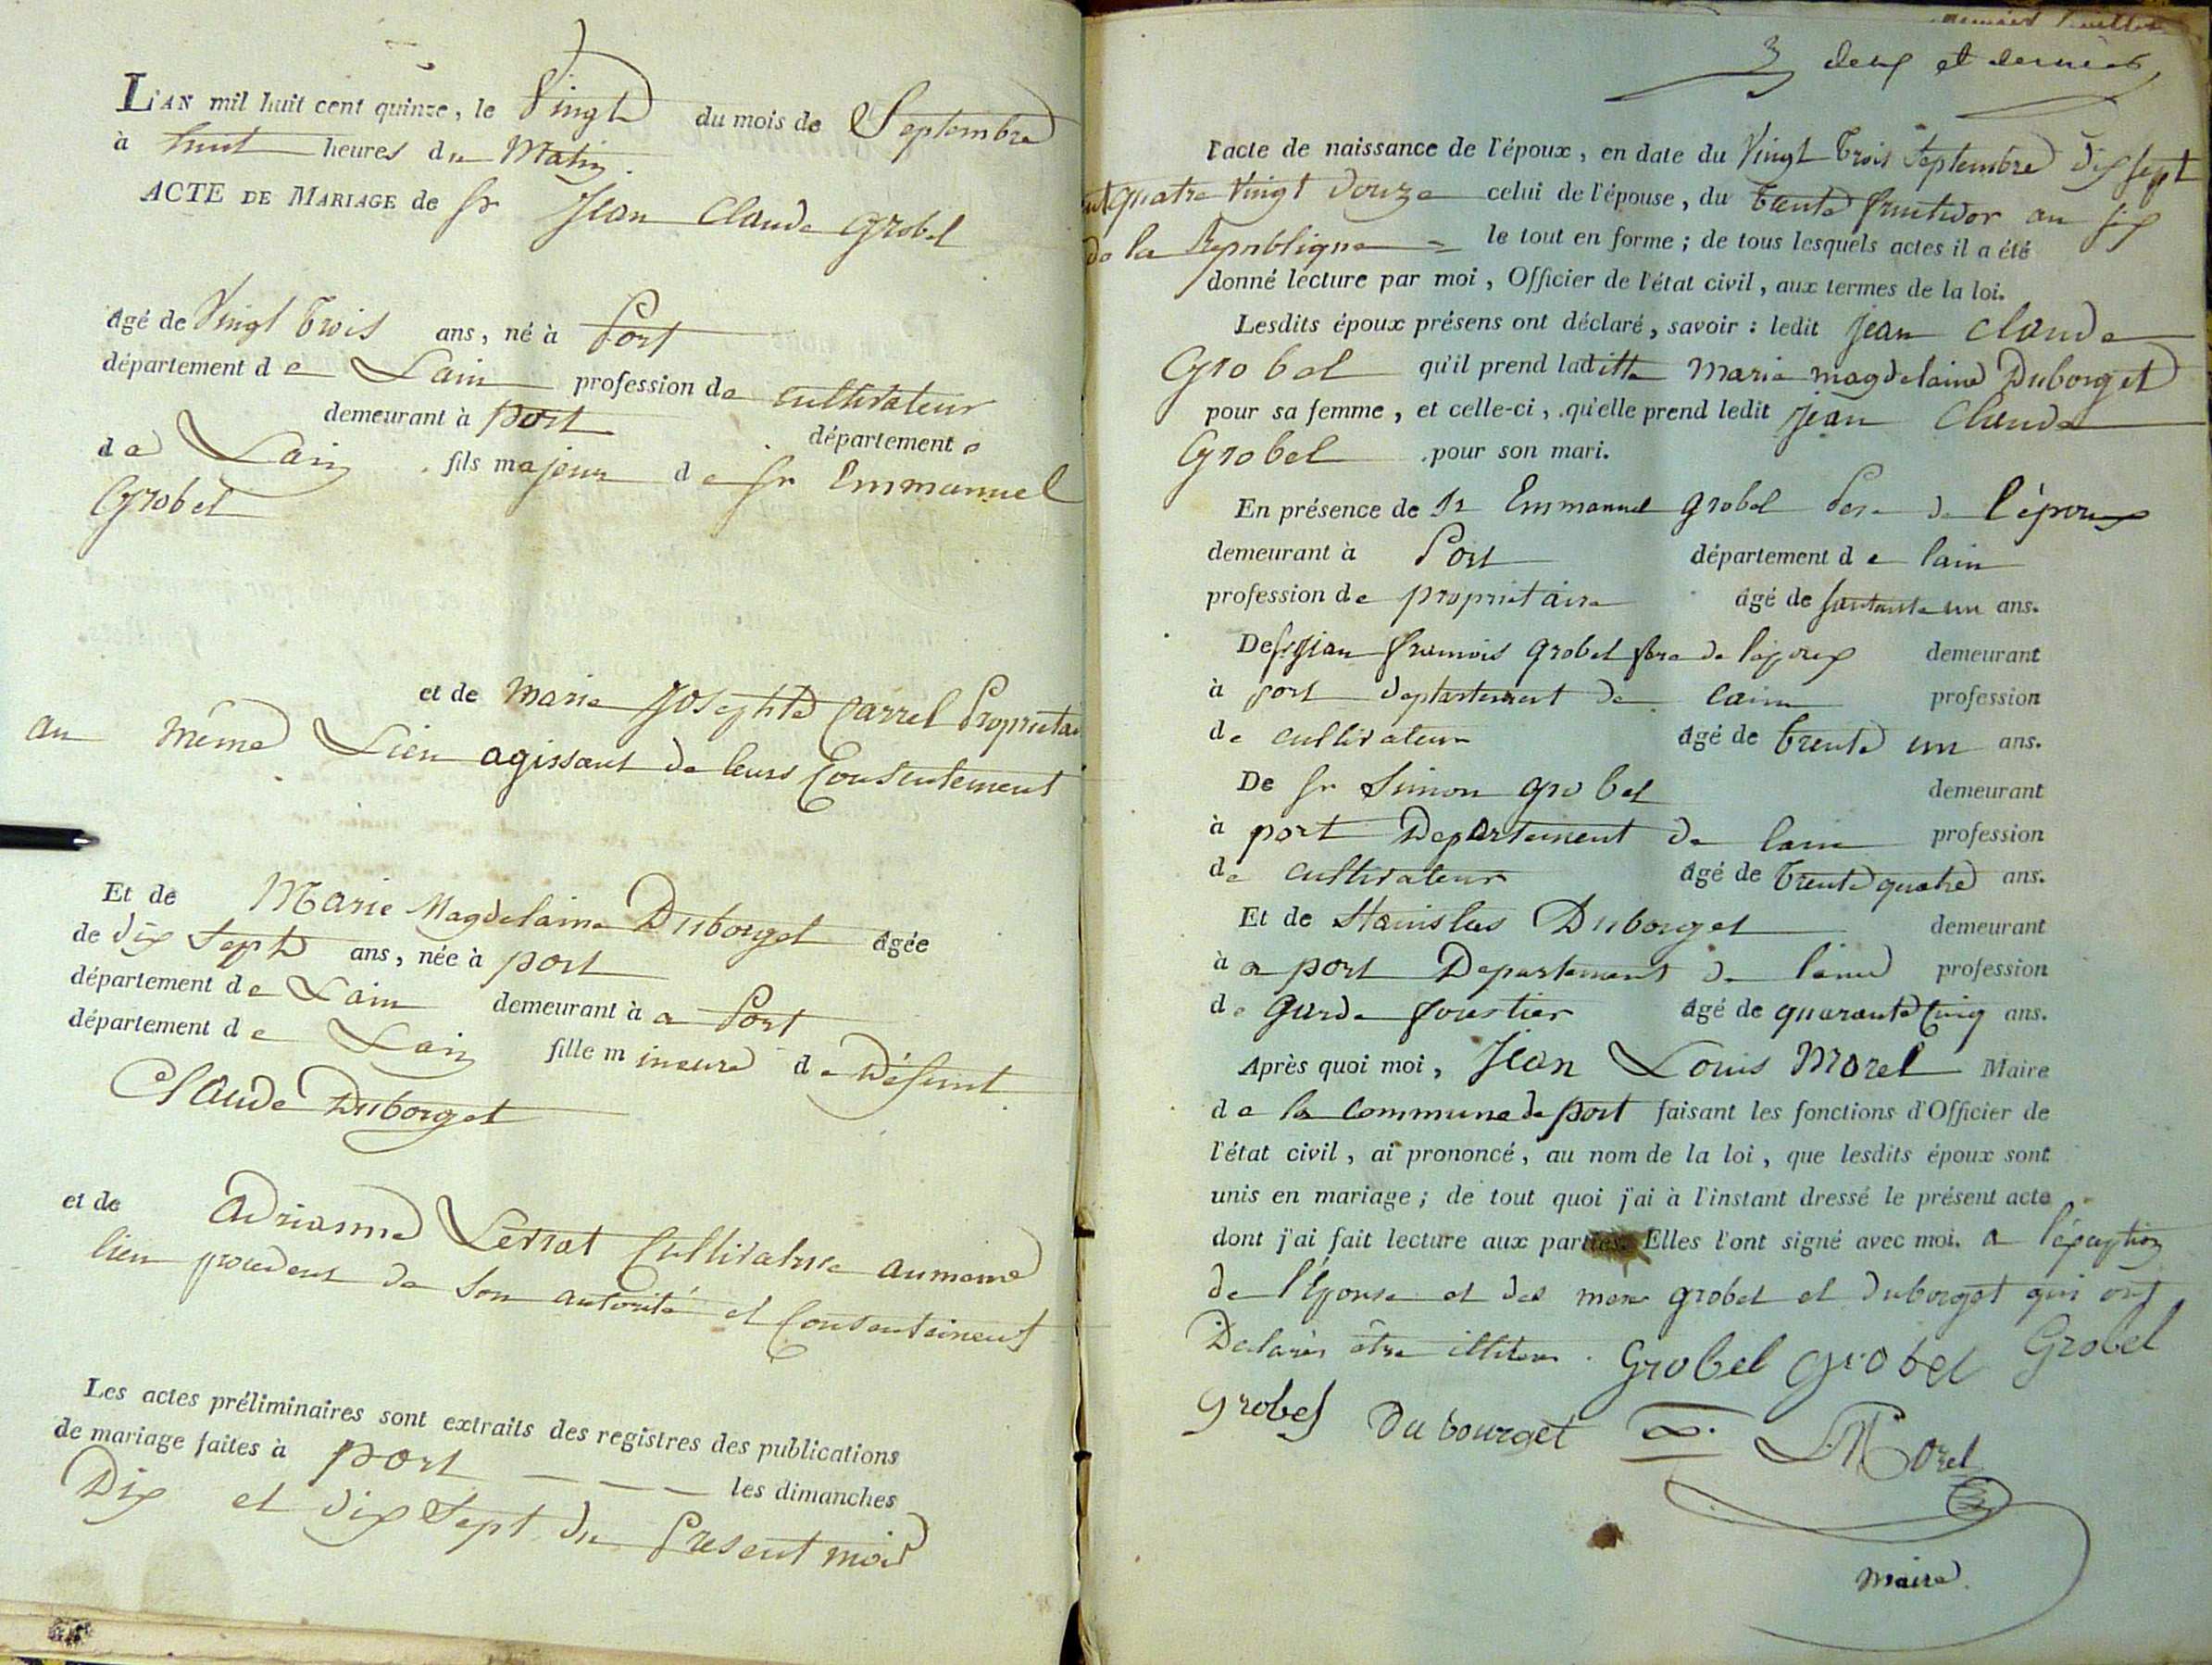 L'AN mil huit cent quinze, le Vingt du mois de Septembre
à huit heures du Matin
ACTE DE MARIAGE de Sr Jean Claude Grobel
âgé de Vingt trois ans, né à Port
département de Lain profession de cultivateur
demeurant à port département
de Lain fils majeur de Sr Emmanuel
Grobel
et de Marie Josephte Carrel Proprietai
au même Lieu agissant de leurs Consentement
Et de Marie Magdelaine Duborget âgée
de dix Sept ans, née à port
département de Lain demeurant à a Port
département de Lain fille mineure de Défunt
Claude Duborget
et de Adrianne Lerrat Cultivatrice au meme
lieu procedent de Son autorité et Consentement
Les actes préliminaires sont extraits des registres des publications
de mariage faites à port — — — les dimanches
Dix et dix Sept du Present mois
3 deux et dernier
l'acte de naissance de l'époux, en date du Vingt trois Septembre dix sept
cent quatre Vingt douze celui de l'épouse, du trente fructidor an six
de la Republique = le tout en forme ; de tous lesquels actes il a été
donné lecture par moi, Officier de l'état civil, aux termes de la loi.
Lesdits époux présens ont déclaré, savoir : ledit Jean Claude
Grobel qu'il prend laditte Marie magdelaine Duborget
pour sa femme, et celle-ci, qu'elle prend ledit Jean Claude
Grobel pour son mari.
En présence de Sr Emmanuel grobel Pere de l'époux
demeurant à Port département de lain
profession de proprietaire âgé de soixante un ans.
De Sr Jean francois grobel frere de l'epoux demeurant
à port departement de lain profession
de cultivateur âgé de trente un ans.
De Sr Simon grobel demeurant
à port Departement de lain profession
de cultivateur âgé de trente quatre ans.
Et de Stanislas Duborget demeurant
à a port Departement de lain profession
de garde forestier âgé de quarante Cinq ans.
Après quoi moi, Jean Louis Morel Maire
de la commune de port faisant les fonctions d'Officier de
l'état civil, ai prononcé, au nom de la loi, que lesdits époux sont
unis en mariage ; de tout quoi j'ai à l'instant dressé le présent acte
dont j'ai fait lecture aux parties. Elles l'ont signé avec moi. a l'éxception
de l'épouse et des mere grobel et duborget qui ont
Declarés être illiteres. Grobel grobel Grobel
grobel Du bourget Morel
maire